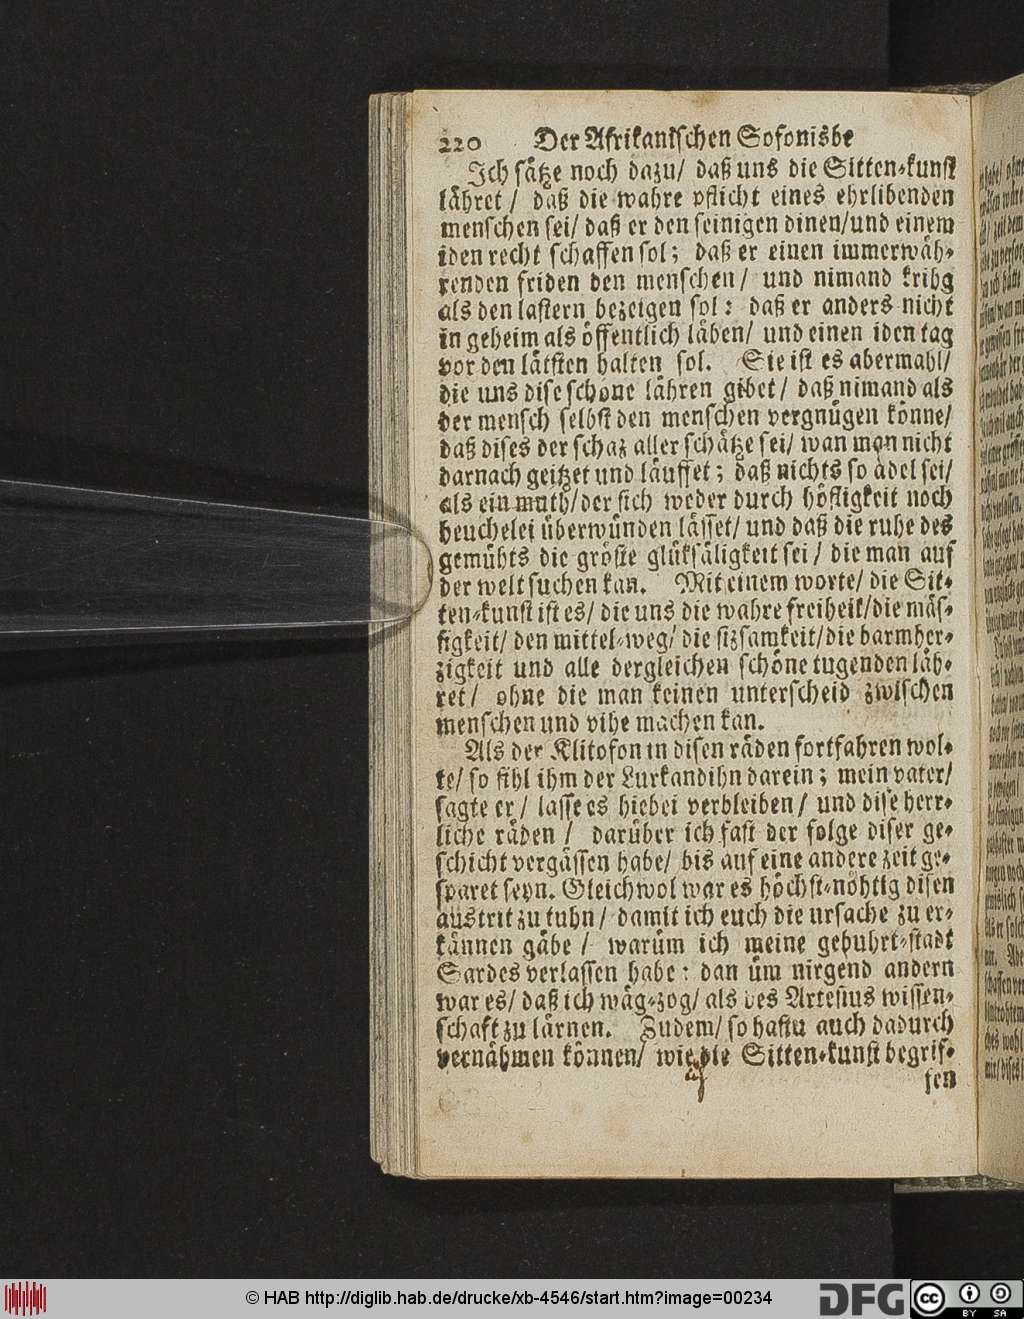 220 Der Afrikanischen Sofonisbe
Ich sätze noch dazu/ daß uns die Sitten-kunst
lähret/ daß die wahre pflicht eines ehrlibenden
menschen sei/ daß er den seinigen dinen/und einem
iden recht schaffen sol; daß er einen immerwäh-
renden friden den menschen/ und nimand krihg
als den lastern bezeigen sol: daß er anders nicht
in geheim als öffentlich läben/ und einen iden tag
vor den lätsten halten sol. Sie ist es abermahl/
die uns dise schöne lähren gibet/ daß nimand als
der mensch selbst den menschen vergnügen könne/
daß dises der schaz aller schätze sei/ wan man nicht
darnach geitzet und läuffet; daß nichts so ädel sei/
als ein muth/der sich weder durch höfligkeit noch
heuchelei überwünden lässet/ und daß die ruhe des
gemühts die gröste glüksäligkeit sei/ die man auf
der welt suchen kan. Mit einem worte/ die Sit-
ten-kunst ist es/ die uns die wahre freiheit/die mäs-
sigkeit/ den mittel-weg/ die sizsamkeit/die barmher-
zigkeit und alle dergleichen schöne tugenden läh-
ret/ ohne die man keinen unterscheid zwischen
menschen und vihe machen kan.
Als der Klitofon in disen räden fortfahren wol-
te/ so fihl ihm der Lurkandihn darein; mein vater/
sagte er/ lasse es hiebei verbleiben/ und dise herr-
liche räden/ darüber ich fast der folge diser ge-
schicht vergässen habe/ bis auf eine andere zeit ge-
sparet seyn. Gleichwol war es höchst-nöhtig disen
austrit zu tuhn/ damit ich euch die ursache zu er-
kännen gäbe/ warüm ich meine gebuhrt-stadt
Sardes verlassen habe: dan üm nirgend andern
war es/ daß ich wäg-zog/ als des Artesius wissen-
schaft zu lärnen. Zudem/ so hastu auch dadurch
vernähmen können/ wie die Sitten-kunst begrif-
fen
© HAB http://diglib.hab.de/drucke/xb-4546/start.htm?image=00234
DFG
cc
BY SA